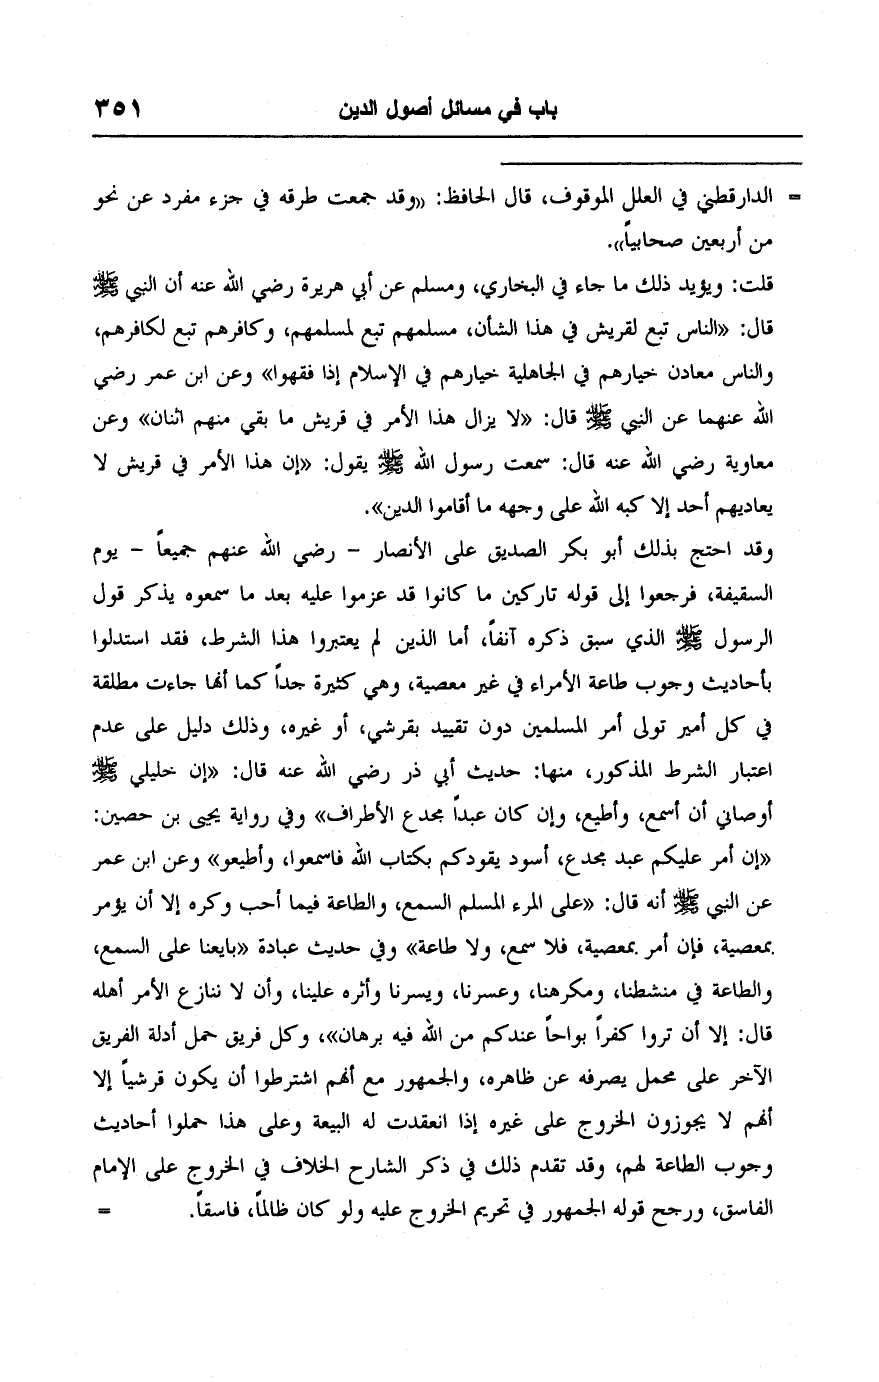 باب في مسائل أصول الدين ٣٥١
= الدارقطني في العلل الموقوف، قال الحافظ: «وقد جمعت طرقه في جزء مفرد عن نحو
من أربعين صحابياً».
قلت: ويؤيد ذلك ما جاء في البخاري، ومسلم عن أبي هريرة رضي الله عنه أن النبي ﷺ
قال: «الناس تبع لقريش في هذا الشأن، مسلمهم تبع لمسلمهم، وكافرهم تبع لكافرهم،
والناس معادن خيارهم في الجاهلية خيارهم في الإسلام إذا فقهوا» وعن ابن عمر رضي
الله عنهما عن النبي ﷺ قال: «لا يزال هذا الأمر في قريش ما بقي منهم اثنان» وعن
معاوية رضي الله عنه قال: سمعت رسول الله ﷺ يقول: «إن هذا الأمر في قريش لا
يعاديهم أحد إلا كبه الله على وجهه ما أقاموا الدين».
وقد احتج بذلك أبو بكر الصديق على الأنصار – رضي الله عنهم جميعاً – يوم
السقيفة، فرجعوا إلى قوله تاركين ما كانوا قد عزموا عليه بعد ما سمعوه يذكر قول
الرسول ﷺ الذي سبق ذكره آنفاً، أما الذين لم يعتبروا هذا الشرط، فقد استدلوا
بأحاديث وجوب طاعة الأمراء في غير معصية، وهي كثيرة جداً كما أنها جاءت مطلقة
في كل أمير تولى أمر المسلمين دون تقييد بقرشي، أو غيره، وذلك دليل على عدم
اعتبار الشرط المذكور، منها: حديث أبي ذر رضي الله عنه قال: «إن خليلي ﷺ
أوصاني أن أسمع، وأطيع، وإن كان عبداً مجدع الأطراف» وفي رواية يحيى بن حصين:
«إن أمر عليكم عبد مجدع، أسود يقودكم بكتاب الله فاسمعوا، وأطيعو» وعن ابن عمر
عن النبي ﷺ أنه قال: «على المرء المسلم السمع، والطاعة فيما أحب وكره إلا أن يؤمر
بمعصية، فإن أمر بمعصية، فلا سمع، ولا طاعة» وفي حديث عبادة «بايعنا على السمع،
والطاعة في منشطنا، ومكرهنا، وعسرنا، ويسرنا وأثره علينا، وأن لا ننازع الأمر أهله
قال: إلا أن تروا كفراً بواحاً عندكم من الله فيه برهان»، وكل فريق حمل أدلة الفريق
الآخر على محمل يصرفه عن ظاهره، والجمهور مع أنهم اشترطوا أن يكون قرشياً إلا
أنهم لا يجوزون الخروج على غيره إذا انعقدت له البيعة وعلى هذا حملوا أحاديث
وجوب الطاعة لهم، وقد تقدم ذلك في ذكر الشارح الخلاف في الخروج على الإمام
الفاسق، ورجح قوله الجمهور في تحريم الخروج عليه ولو كان ظالماً، فاسقاً. =